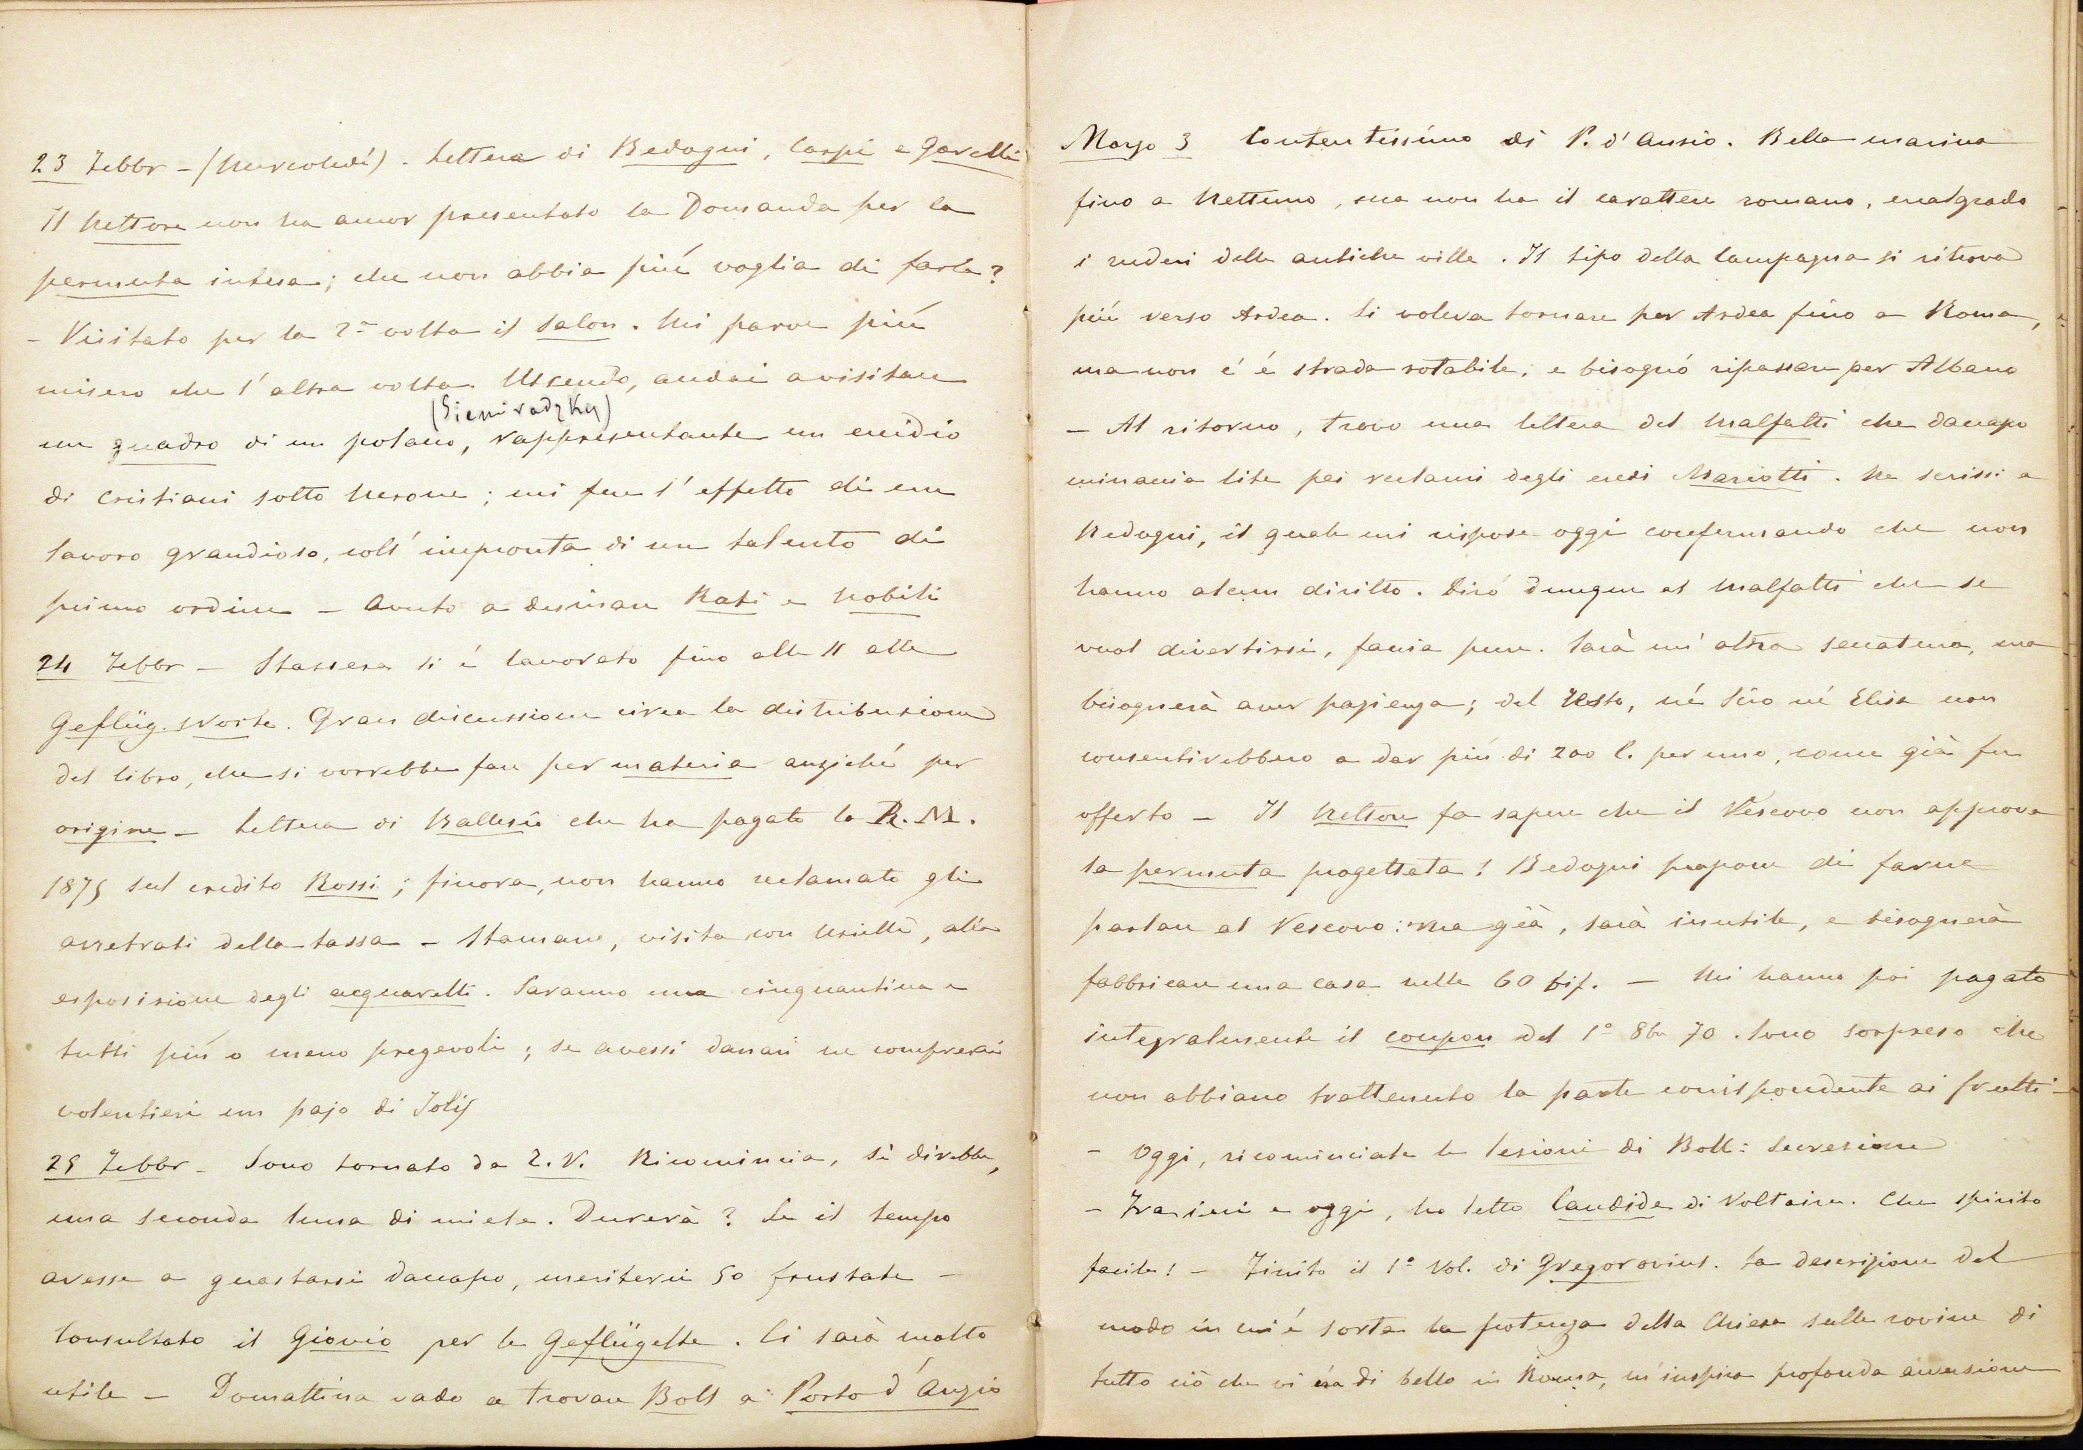 23 Febbr – (Mercoledì). Lettera di Bedogni, Carpi e Gorelli
Il Rettore non ha ancor presentato la Domanda per la
permuta intesa; che non abbia più voglia di farla?
– Visitato per la 2ª volta il Salon. Mi parve più
misero che l'altra volta. Uscendo, andai a visitare
(Siemiradzky)
un quadro di un polacco, rappresentante un eccidio
di Cristiani sotto Nerone; mi fece l'effetto di un
lavoro grandioso, coll'impronta di un talento di
primo ordine – Avuto a desinare Rati e Nobili
24 Febbr – Stassera si è lavorato fino alle 11 alle
Geflüg. Worte. Gran discussione circa la distribuzione
del libro, che si vorrebbe fare per materia anziché per
origine – Lettera di Ballerini che ha pagato la R. M.
1875 sul credito Rossi; finora, non hanno reclamato gli
arretrati della tassa – Stamane, visita con Usielli, alla
esposizione degli acquarelli. Saranno una cinquantina e
tutti più o meno pregevoli; se avessi danari ne comprerei
volentieri un pajo di Joliz
25 Febbr – Sono tornato da E. V. Ricomincia, si direbbe,
una seconda luna di miele. Durerà? Se il tempo
avesse a guastarsi daccapo, meriterei 50 frustate –
Consultato il Giovio per le Geflügelte. Ci sarà molto
utile – Domattina vado a trovare Boll a Porto d'Anzio
Marzo 3 Contentissimo di P. d'Anzio. Bella marina
fino a Nettuno, ma non ha il carattere romano, malgrado
i ruderi delle antiche ville. Il tipo della Campagna si ritrova
più verso Ardea. Si voleva tornare per Ardea fino a Roma,
ma non c'è strada rotabile, e bisognò ripassare per Albano
– Al ritorno, trovo una lettera del Malfatti che daccapo
minaccia lite pei reclami degli eredi Mariotti. Ne scrissi a
Bedogni, il quale mi rispose oggi confermando che non
hanno alcun diritto. Dirò dunque al Malfatti che se
vuol divertirsi, faccia pure. Sarà un'altra seccatura, ma
bisognerà aver pazienza; del resto, né Siro né Elisa non
consentirebbero a dar più di 200 l. per uno, come già fu
offerto – Il Rettore fa sapere che il Vescovo non approva
la permuta progettata! Bedogni propone di farne
parlare al Vescovo: ma già, sarà inutile, e bisognerà
fabbricare una casa nelle 60 bif. – Mi hanno poi pagato
integralmente il coupon del 1º 8bre 70. Sono sorpreso che
non abbiano trattenuto la parte corrispondente ai frutti –
– Oggi, ricominciate le lezioni di Boll: Secrezione
– Fra ieri e oggi, ho letto Candide di Voltaire. Che spirito
facile! – Finito il 1º Vol. di Gregorovius. La descrizione del
modo in cui è sorta la potenza della Chiesa sulle rovine di
tutto ciò che vi era di bello in Roma, m'inspira profonda avversione